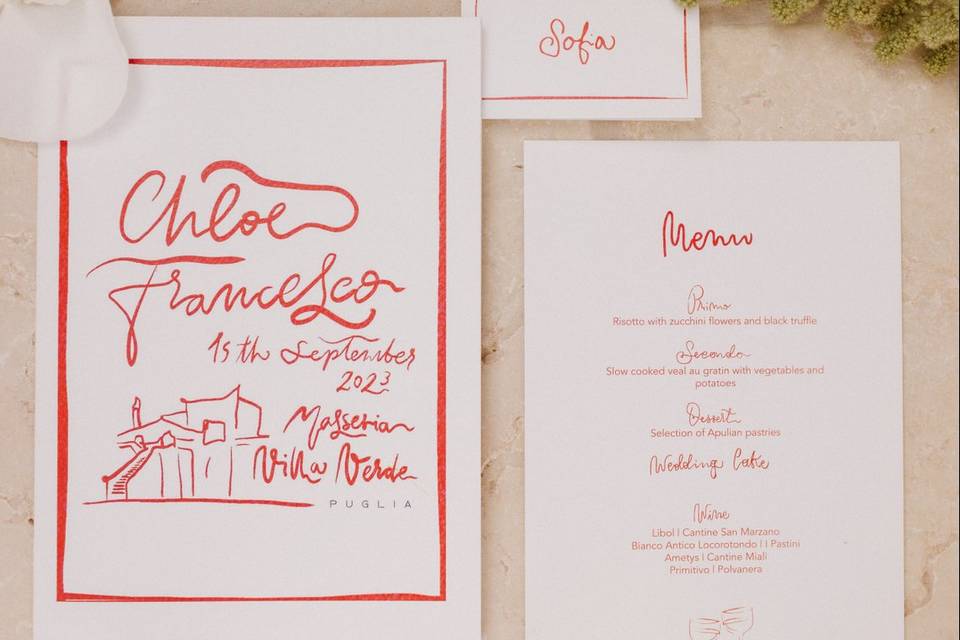 Chloe
Francesco
15th September
2023
Masseria
Villa Verde
PUGLIA
Sofia
Menu
Primo
Risotto with zucchini flowers and black truffle
Secondo
Slow cooked veal au gratin with vegetables and
potatoes
Dessert
Selection of Apulian pastries
Wedding Cake
Wine
Libol | Cantine San Marzano
Bianco Antico Locorotondo | I Pastini
Ametys | Cantine Miali
Primitivo | Polvanera